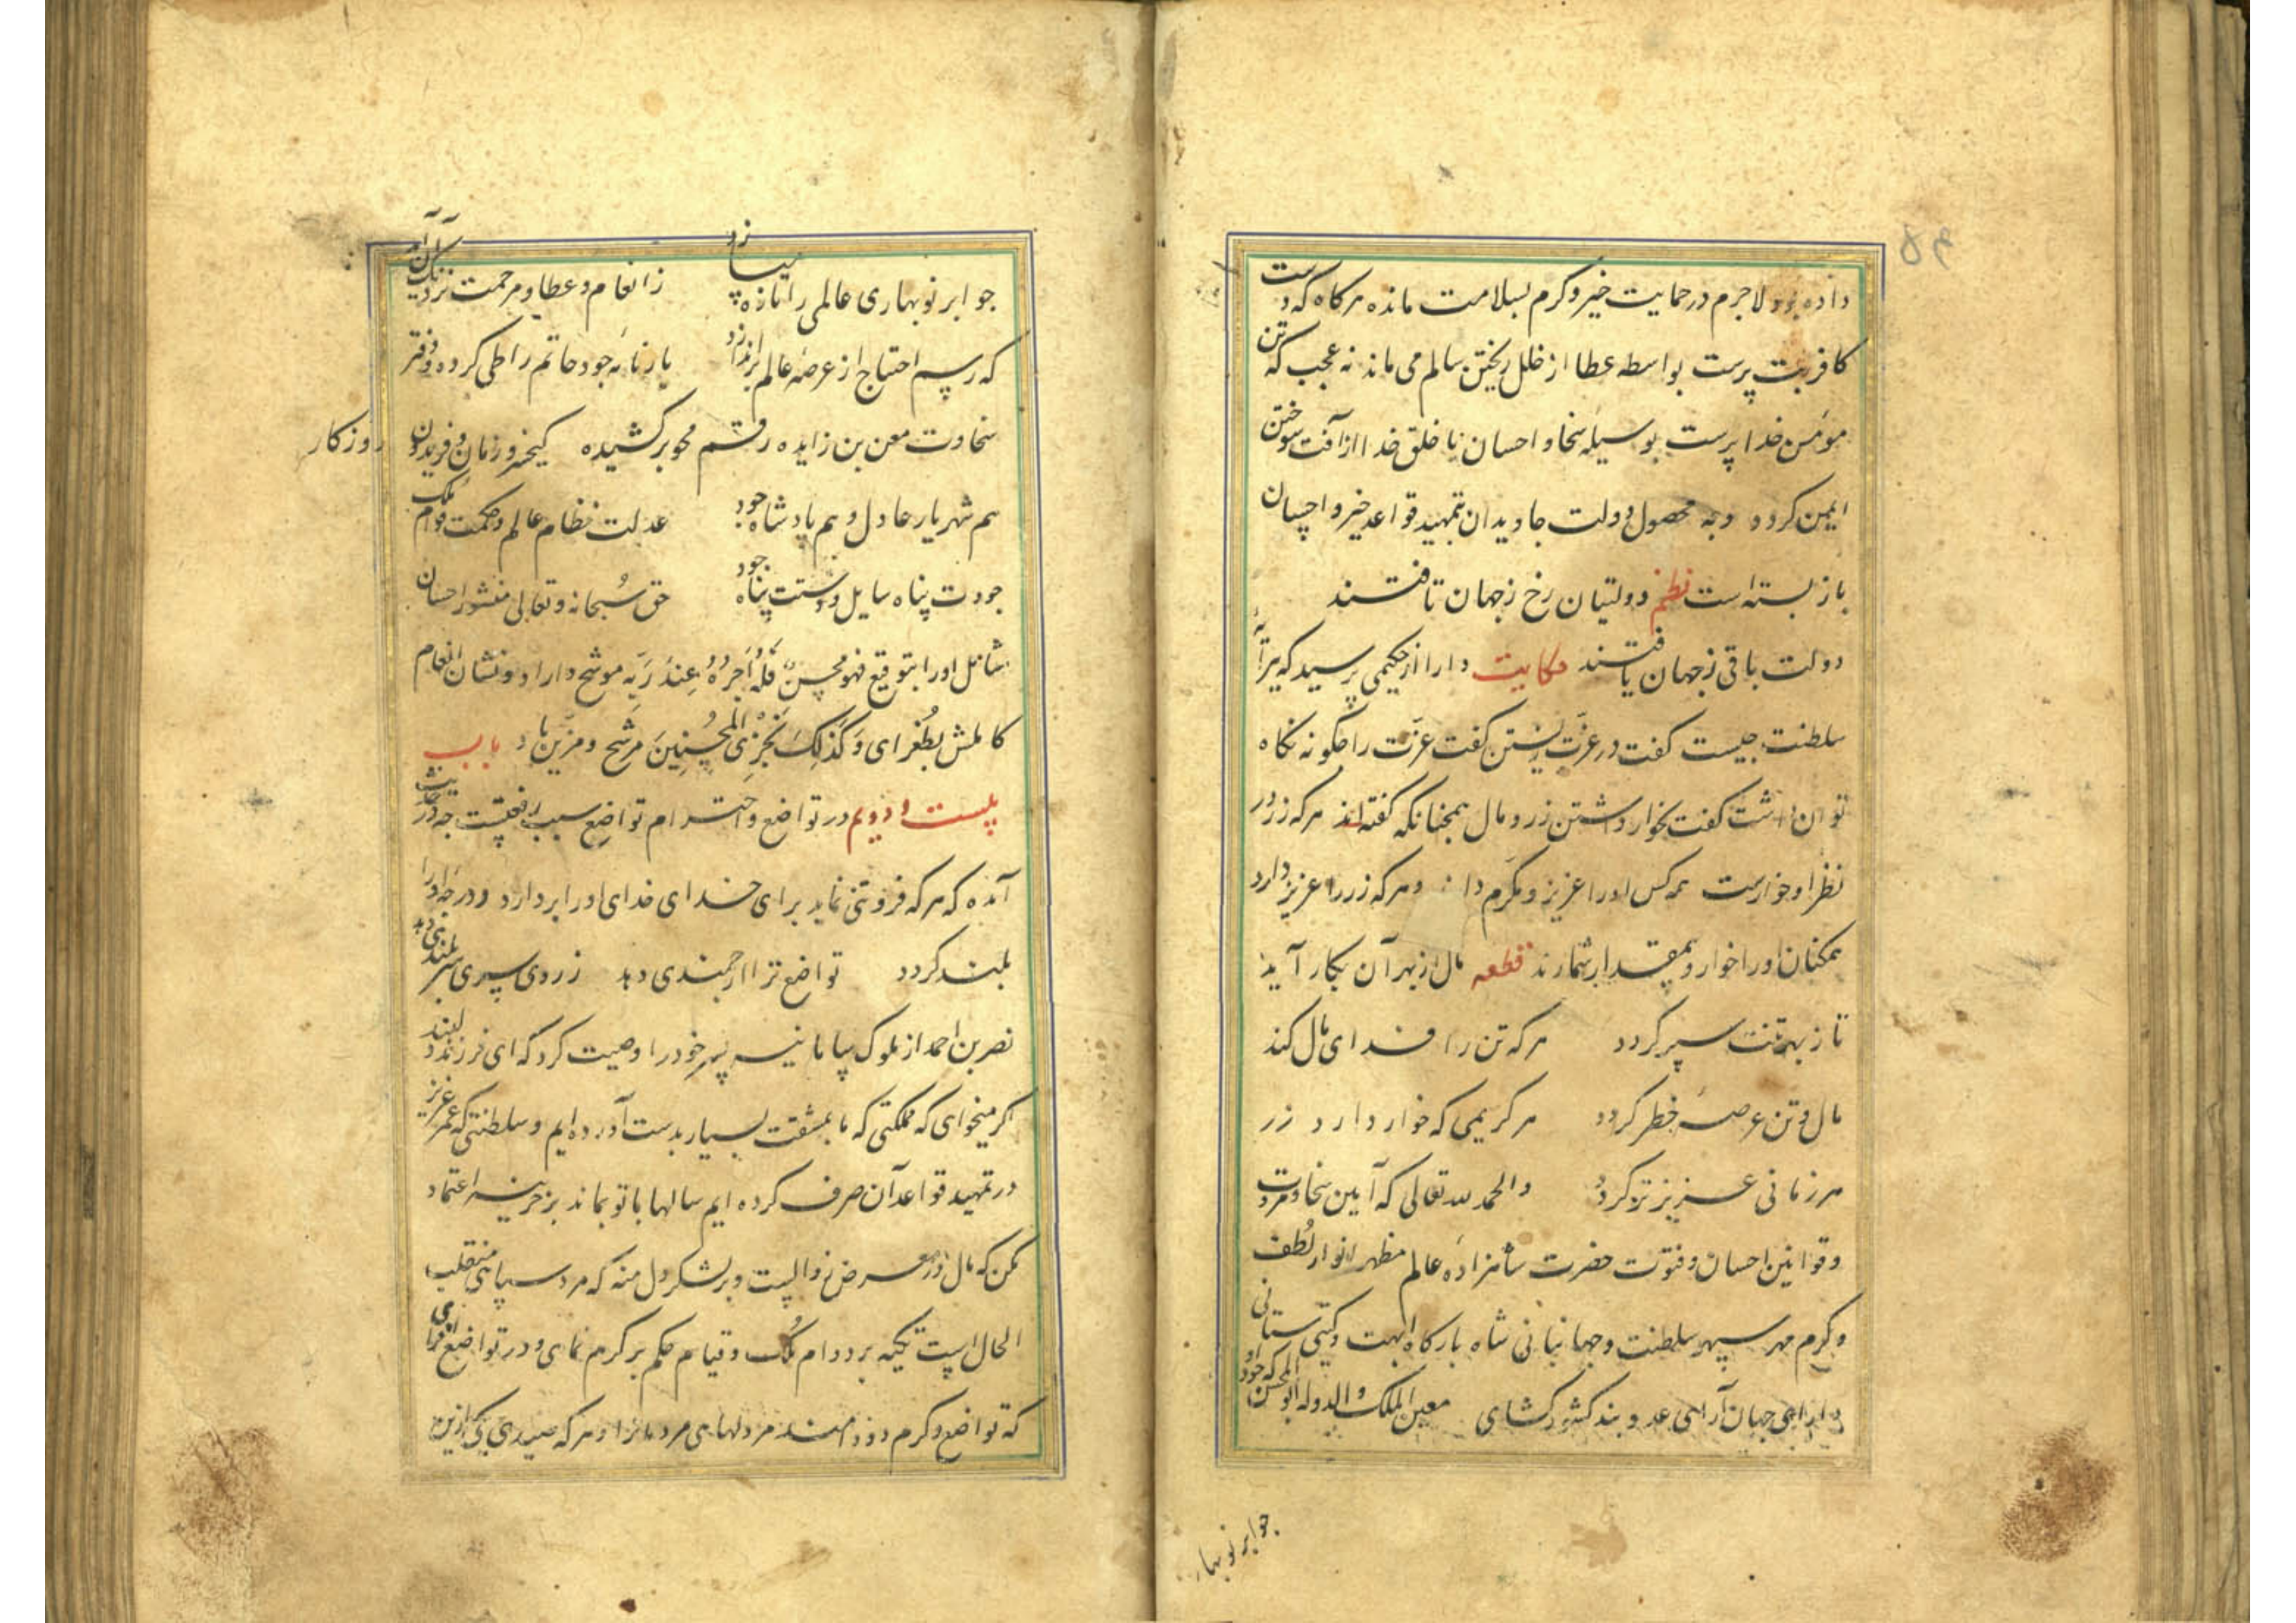 داده بود لاجرم در حمایت خیر و کرم بسلامت مانده هرکاه که دست
کافر بت پرست بواسطه عطا از خلل ریختن سالم می ماند نه عجب که تن
مؤمن خدا پرست بوسیله سخا و احسان با خلق خدا از آفت سوختن
ایمن کردد و به محصول دولت جاویدان تمهید قواعد خیر و احسان
باز بسته است نظم دولتیان رخ ز جهان تافتند
دولت باقی ز جهان یافتند حکایت دارا از حکیمی پرسید که پیرایه
سلطنت چیست کفت در عزت زیستن کفت عزت را چکونه نکاه
توان داشت کفت بخوار داشتن زر و مال همچنانکه کفته اند هرکه زر در
نظر او خوارست همه کس او را عزیز و مکرم دارند و هرکه زر را عزیز دارد
همکنان او را خوار و بیمقدار شمارند قطعه مال از بهر آن بکار آید
تا ز بهر تنت سپر کردد هرکه تن را فدای مال کند
مال و تن عرصه خطر کردد هر کریمی که خوار دارد زر
هر زمانی عزیز تر کردد والحمد لله تعالی که آیین سخاوت و مروت
و قوانین احسان و فتوت حضرت شاهزاده عالم مظهر انوار لطف
و کرم مهر سپهر سلطنت و جهانبانی شاه بارکاه ابهت و کیتی ستانی
دارای جهان آرای عدو بند کشور کشای معین الملک والدوله ابو المحسن که جود او
جو ابر نوبهار
جو ابر نوبهاری عالمی را تازه میسازد ز انعام و عطا و مرحمت نزدیک آن آمد
که رسم احتیاج از عرصه عالم براندازد بارنامه جود حاتم را طی کرده و دفتر
سخاوت معن بن زایده رقم محو برکشیده کیخسرو زمان و فریدون روزکار
هم شهریار عادل و هم پادشاه جود عدلت نظام عالم و حکمت قوام ملک
جودت پناه سایل و دستت پناه جود حق سبحانه و تعالی منشور احسان
شامل او را بتوقیع فهو محسن فَلَهُ اَجرُهُ عِندَ رَبِّه موشح دارد و نشان انعام
کاملش بطُغرای وَ کَذلِکَ نَجزِی المُحسِنِینَ مرشح و مزین باد باب
بیست و دویم در تواضع و احترام تواضع سبب رفعتست جه در حدیث
آمده که هرکه فروتنی نماید برای خدای خدای او را بردارد و درجه او را
بلند کردد تواضع ترا ارجمندی دهد ز روی سپری سربلندی دهد
نصر بن احمد از ملوک سامانیه پسر خود را وصیت کرد که ای فرزند دلبند
اکر میخوای که مملکتی که ما بمشقت بسیار بدست آورده ایم و سلطنتی که عمر عزیز
در تمهید قواعد آن صرف کرده ایم سالها با تو بماند بر خزینه اعتماد
مکن که مال در معرض زوالست و بر لشکر دل منه که مرد سپاهی منقلب
الحال است تکیه بر دوام ملک و قیام حکم بر کرم نمای و در تواضع افزای
که تواضع و کرم دو دام‌اند مر دلهای مردمانرا و هرکه صیدی بی ازین